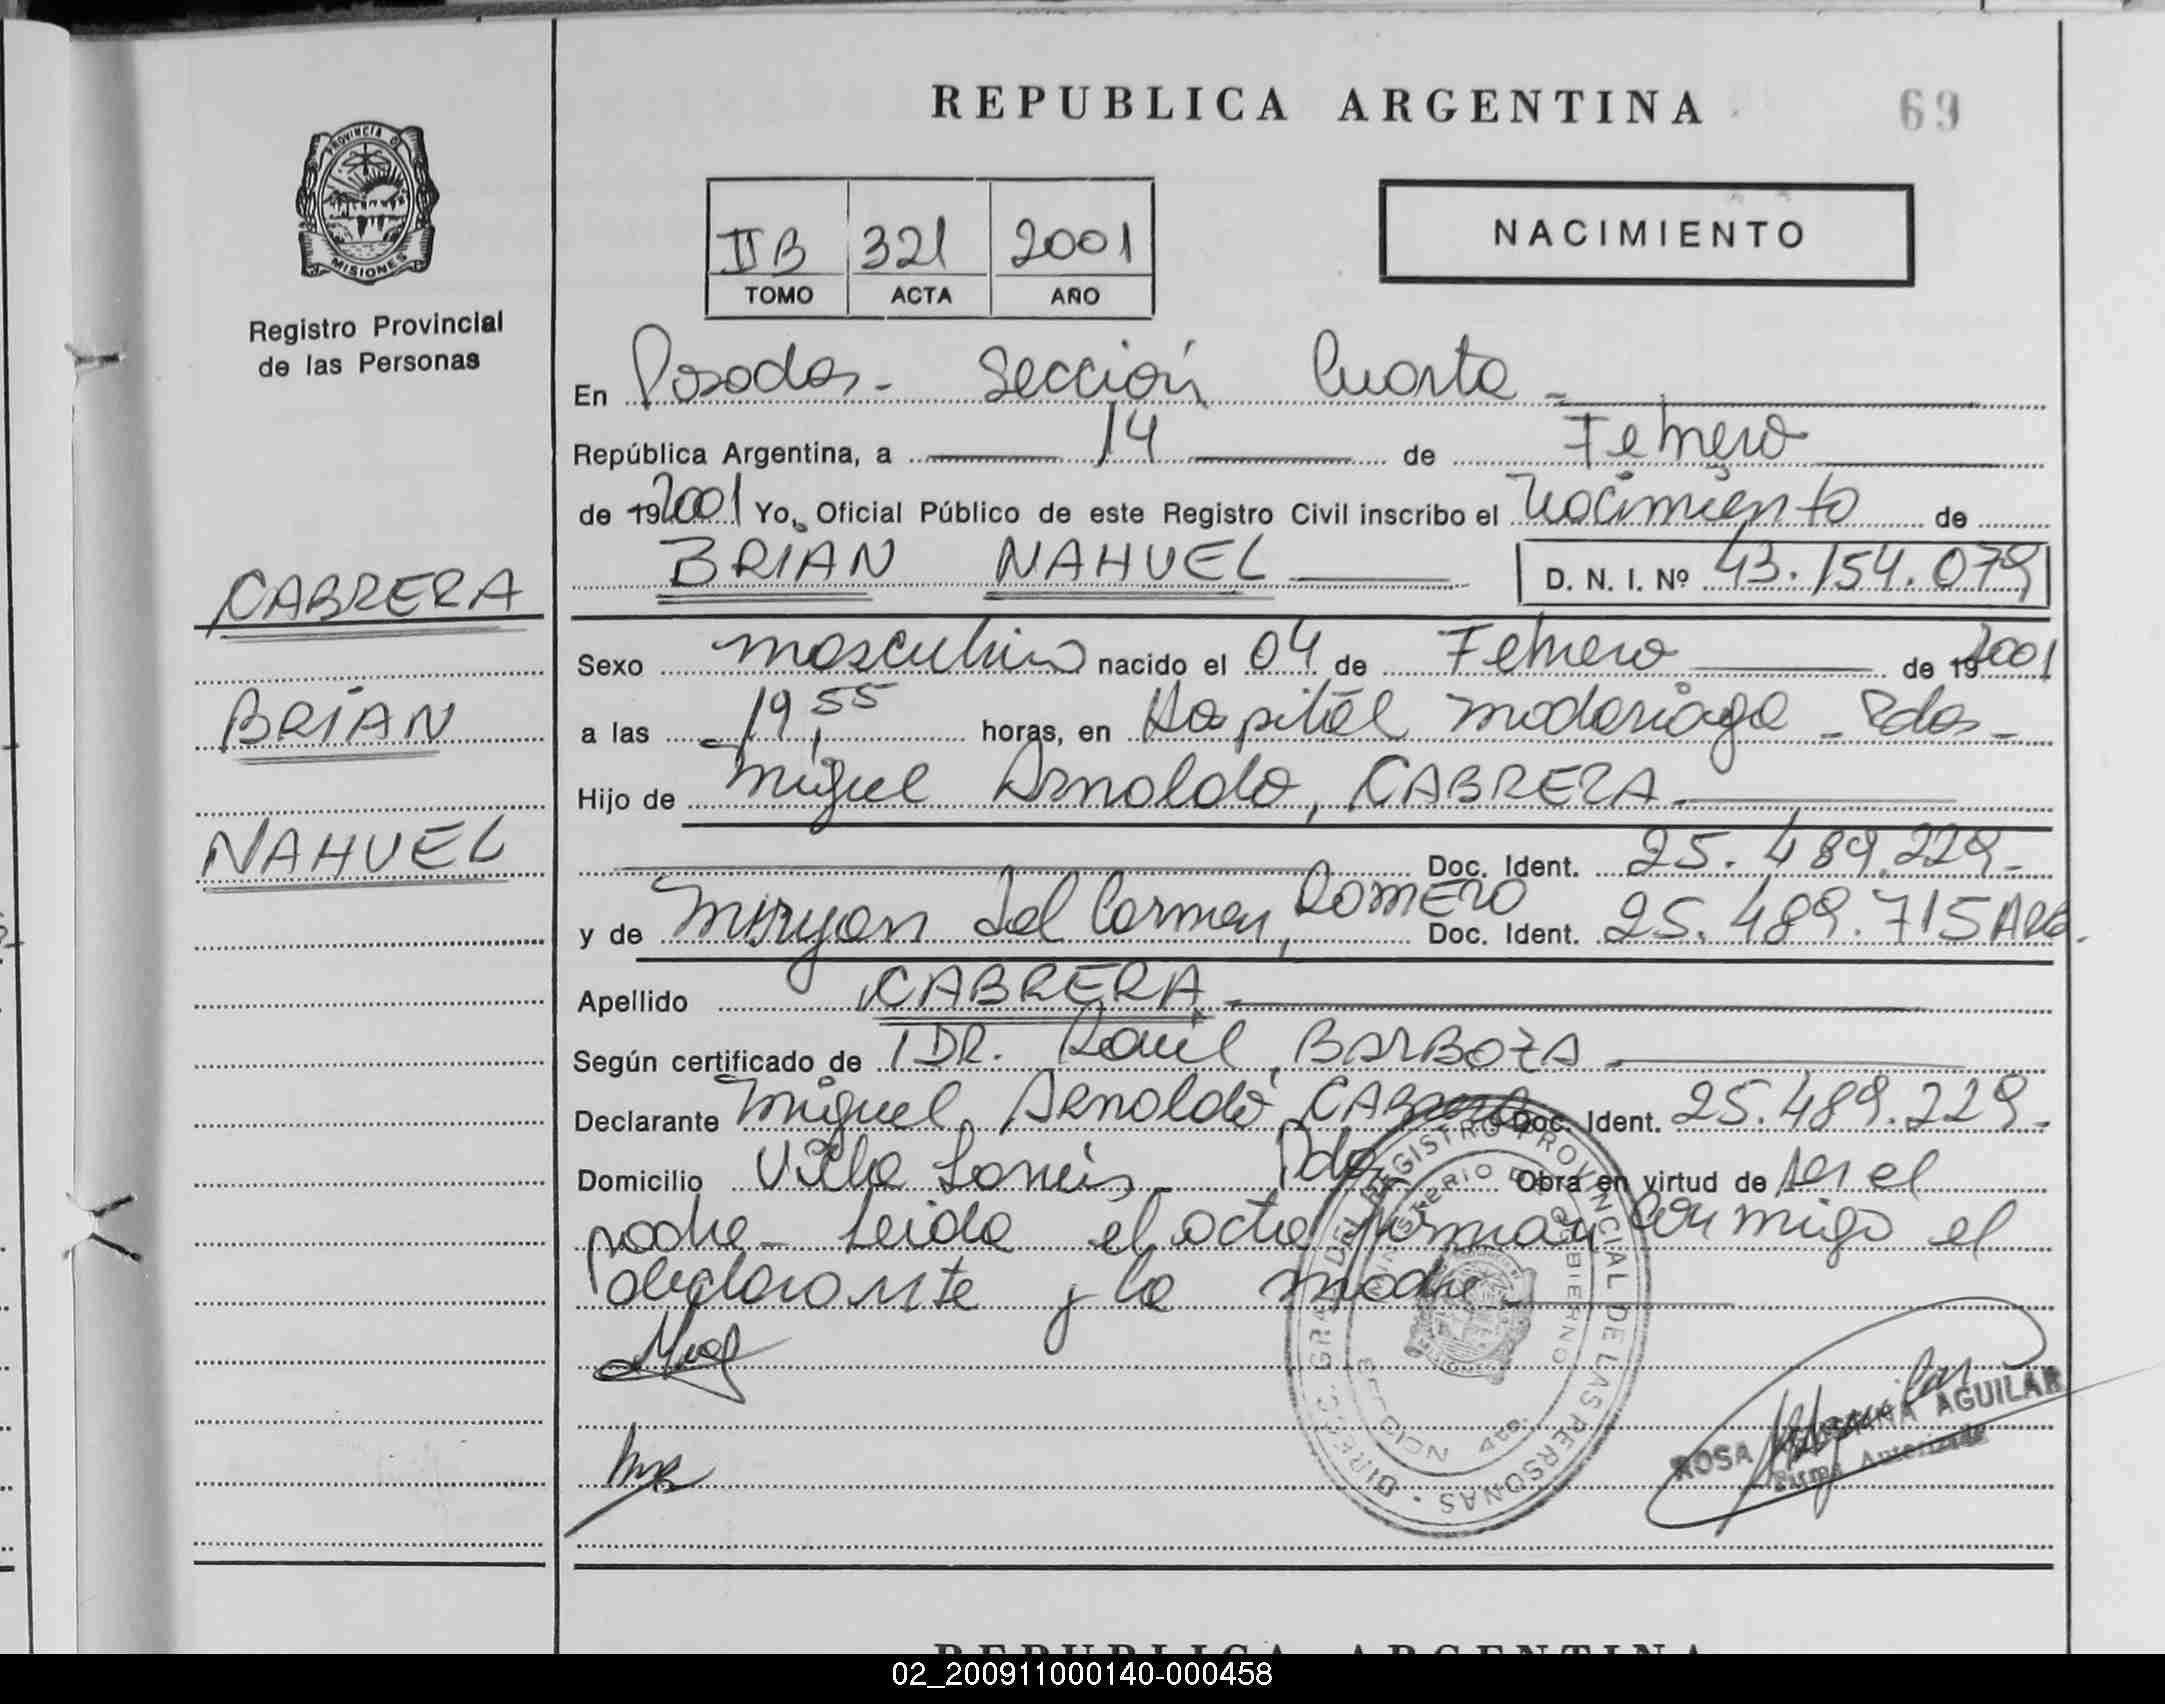 REPUBLICA ARGENTINA
69
PROVINCIA DE
MISIONES
Registro Provincial
de las Personas
IIB 321 2001
TOMO ACTA AÑO
NACIMIENTO
En Posadas - Sección Cuarta -
República Argentina, a 14 de Febrero
de 19 2001 Yo, Oficial Público de este Registro Civil inscribo el Nacimiento de
BRIAN NAHUEL D. N. I. Nº 43.154.079
CABRERA
BRIAN
NAHUEL
Sexo masculino nacido el 04 de Febrero de 19 2001
a las 19,55 horas, en Hospital Madariaga - Pdas -
Hijo de Miguel Arnoldo, CABRERA -
Doc. Ident. 25.489.229 -
y de Miryan del Carmen, ROMERO Doc. Ident. 25.489.715 ARG.
Apellido CABRERA -
Según certificado de DR. Raul, BARBOZA -
Declarante Miguel Arnoldo CABRERA Doc. Ident. 25.489.229 -
Domicilio Villa Pdas Obra en virtud de ser el
padre - Leida el acta firman conmigo el
declarante y la madre
DEL REGISTRO PROVINCIAL DE LAS PERSONAS
MINISTERIO DE GOBIERNO
ROSA AGUILAR
Firma Autorizada
REPUBLICA ARGENTINA
02_200911000140-000458